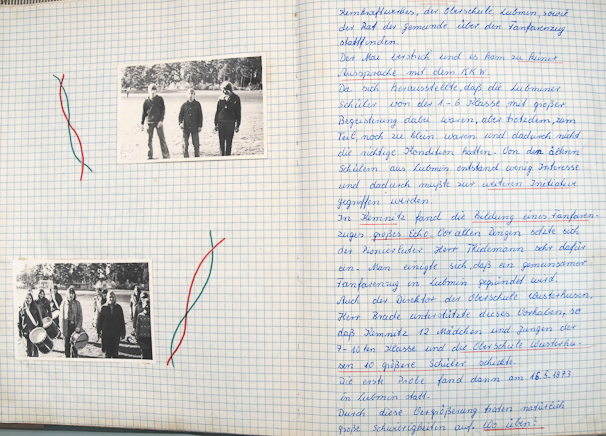 Kernkraftwerkes, der Oberschule, Lubmin, sowie
der Rat der Gemeinde über den Fanfarenzug
stattfinden.
Der Mai verstrich und es kam zu keiner
Aussprache mit dem KKW.
Da sich herausstellte, daß die Lubminer
Schüler von der 1.-6 Klasse mit großer
Begeisterung dabei waren, aber trotzdem, zum
Teil, noch zu klein waren und dadurch nicht
die richtige Kondition hatten. Von den ältern
Schülern aus Lubmin entstand wenig Interesse
und dadurch mußte zur weiteren Initiative
gegriffen werden.
In Kemnitz fand die Bildung eines Fanfaren-
zuges großes Echo. Vor allen Dingen setzte sich
der Pionierleiter Herr Thidemann sehr dafür
ein. Man einigte sich, daß ein gemeinsamer
Fanfarenzug in Lubmin gegründet wird.
Auch der Direktor der Oberschule Wusterhusen,
Herr Brade unterstützte dieses Vorhaben, so
daß Kemnitz 12 Mädchen und Jungen der
7-10ten Klasse und die Oberschule Wusterhu-
sen 10 größere Schüler schickte.
Die erste Probe fand dann am 16.5.1973
in Lubmin statt.
Durch diese Vergrößerung traten natürlich
große Schwierigkeiten auf. Wo üben?